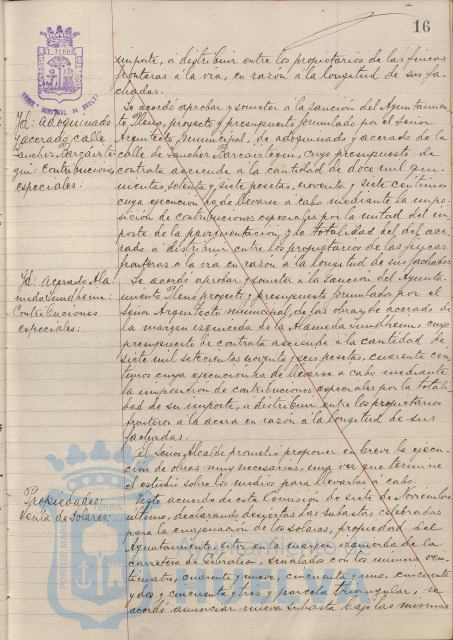 16
importe, á distribuir entre los propietarios de las fincas
fronteras á la vía, en razón á la longitud de sus fa-
chadas.
Id: adoquinado
y acerado calle
Sanchez Barcaiztegui: Contribuciones
especiales:
Se acordó aprobar y someter á la sanción del Ayuntamien-
to Pleno, proyecto y presupuesto formulado por el Señor
Arquitecto municipal, de adoquinado y acerado de la
calle de Sanchez Barcaiztegui, cuyo presupuesto de
contrata asciende á la cantidad de doce mil qui-
nientas, setenta y siete pesetas, noventa y siete céntimos
cuya ejecución ha de llevarse á cabo mediante la impo-
sición de contribuciones especiales por la mitad del im-
porte de la pavimentación, y la totalidad del del ace-
rado á distribuir entre los propietarios de las fincas
fronteras á la vía en razón á la longitud de sus fachadas
Id: Acerado Ala-
meda Sundheim:
Contribuciones
especiales:
Se acordó aprobar y someter á la sanción del Ayunta-
miento Pleno proyecto y presupuesto formulados por el
Señor Arquitecto municipal, de las obras de acerado de
la margen izquierda de la Alameda Sundheim, cuyo
presupuesto de contrata asciende á la cantidad de
siete mil setecientas noventa y seis pesetas, cuarenta cen-
timos cuya ejecución ha de llevarse a cabo mediante
la imposición de contribuciones especiales por la totali-
dad de su importe, á distribuir entre los propietarios
fronteros á la acera en razón á la longitud de sus
fachadas.
El Señor Alcalde prometió proponer en breve la ejecu-
ción de obras muy necesarias, una vez que termine
el estudio sobre los medios para llevarlas á cabo.
Propiedades:
Venta de Solares:
Visto acuerdo de esta Comisión de siete de Noviembre
último, declarando desiertas las subastas celebradas
para la enagenación de los solares, propiedad del
Ayuntamiento, sitos en la margen izquierda de la
carretera de Gibraleon, señalados con los numeros vein-
titrés, cuarenta y nueve, cincuenta y uno, cincuenta
y dos y cincuenta y tres y parcela triangular, se
acordó anunciar nueva subasta bajo las mismas